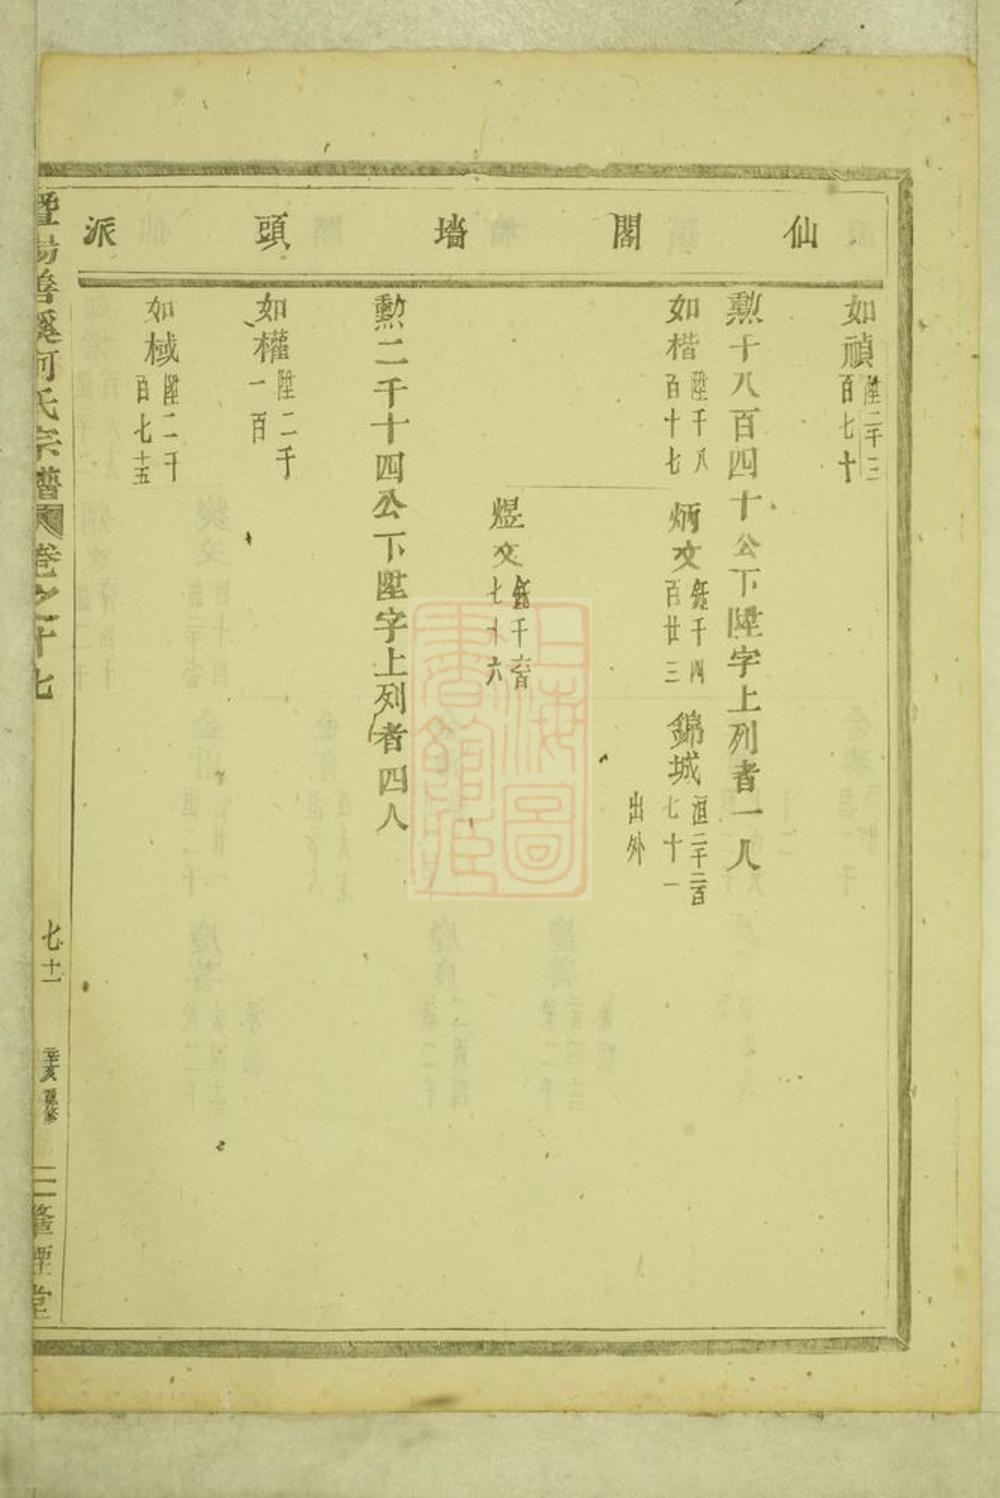 仙閣墻頭派
如禎 陞二千三百七十
勲千八百四十公下陞字上列者一人
如楷 陞千八百十七 炳文 錀千四百廿三 錦城 洹二千二百七十一 出外
煜文 千六百七十六
勲二千十四公下陞字上列者四人
如權 陞二千一百
如棫 陞二千百七十五
暨陽善溪何氏宗譜 卷之十七
七十一
辛亥重修
三隆堂
上海圖書館藏